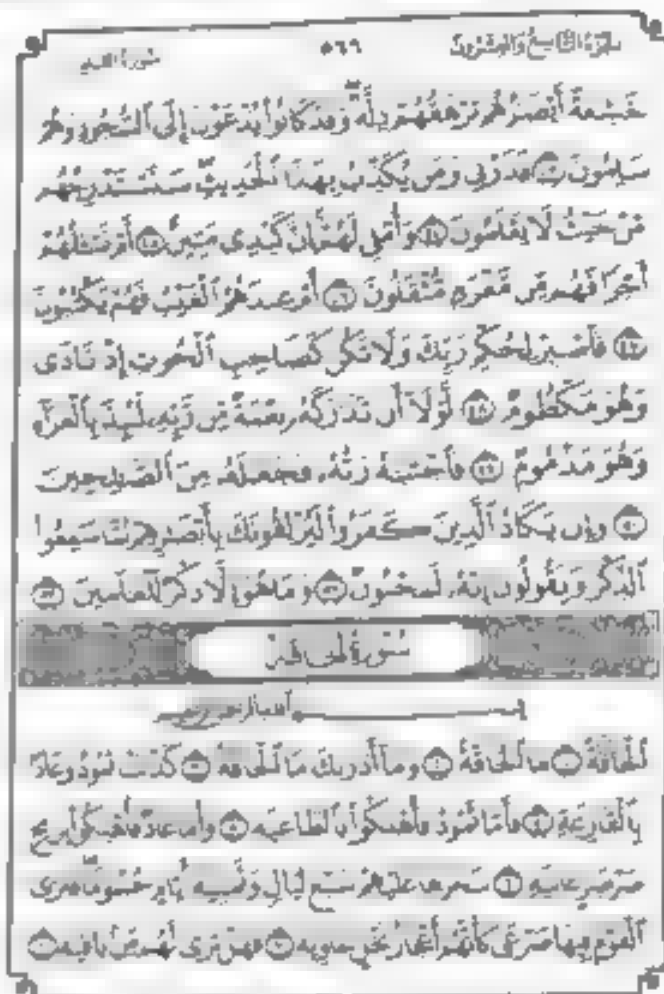 الجزء التاسع والعشرون ٥٦٦ سورة القلم
خَٰشِعَةً أَبْصَٰرُهُمْ تَرْهَقُهُمْ ذِلَّةٌ وَقَدْ كَانُوا۟ يُدْعَوْنَ إِلَى ٱلسُّجُودِ وَهُمْ
سَٰلِمُونَ ٤٣ فَذَرْنِى وَمَن يُكَذِّبُ بِهَٰذَا ٱلْحَدِيثِ سَنَسْتَدْرِجُهُم
مِّنْ حَيْثُ لَا يَعْلَمُونَ ٤٤ وَأُمْلِى لَهُمْ إِنَّ كَيْدِى مَتِينٌ ٤٥ أَمْ تَسْـَٔلُهُمْ
أَجْرًا فَهُم مِّن مَّغْرَمٍ مُّثْقَلُونَ ٤٦ أَمْ عِندَهُمُ ٱلْغَيْبُ فَهُمْ يَكْتُبُونَ
٤٧ فَٱصْبِرْ لِحُكْمِ رَبِّكَ وَلَا تَكُن كَصَاحِبِ ٱلْحُوتِ إِذْ نَادَىٰ
وَهُوَ مَكْظُومٌ ٤٨ لَّوْلَآ أَن تَدَٰرَكَهُۥ نِعْمَةٌ مِّن رَّبِّهِۦ لَنُبِذَ بِٱلْعَرَآءِ
وَهُوَ مَذْمُومٌ ٤٩ فَٱجْتَبَٰهُ رَبُّهُۥ فَجَعَلَهُۥ مِنَ ٱلصَّٰلِحِينَ
٥٠ وَإِن يَكَادُ ٱلَّذِينَ كَفَرُوا۟ لَيُزْلِقُونَكَ بِأَبْصَٰرِهِمْ لَمَّا سَمِعُوا۟
ٱلذِّكْرَ وَيَقُولُونَ إِنَّهُۥ لَمَجْنُونٌ ٥١ وَمَا هُوَ إِلَّا ذِكْرٌ لِّلْعَٰلَمِينَ ٥٢
سُورَةُ الحَاقَّةِ
بِسْمِ ٱللَّهِ ٱلرَّحْمَٰنِ ٱلرَّحِيمِ
ٱلْحَآقَّةُ ١ مَا ٱلْحَآقَّةُ ٢ وَمَآ أَدْرَىٰكَ مَا ٱلْحَآقَّةُ ٣ كَذَّبَتْ ثَمُودُ وَعَادٌۢ
بِٱلْقَارِعَةِ ٤ فَأَمَّا ثَمُودُ فَأُهْلِكُوا۟ بِٱلطَّاغِيَةِ ٥ وَأَمَّا عَادٌ فَأُهْلِكُوا۟ بِرِيحٍ
صَرْصَرٍ عَاتِيَةٍ ٦ سَخَّرَهَا عَلَيْهِمْ سَبْعَ لَيَالٍ وَثَمَٰنِيَةَ أَيَّامٍ حُسُومًا فَتَرَى
ٱلْقَوْمَ فِيهَا صَرْعَىٰ كَأَنَّهُمْ أَعْجَازُ نَخْلٍ خَاوِيَةٍ ٧ فَهَلْ تَرَىٰ لَهُم مِّنۢ بَاقِيَةٍ ٨